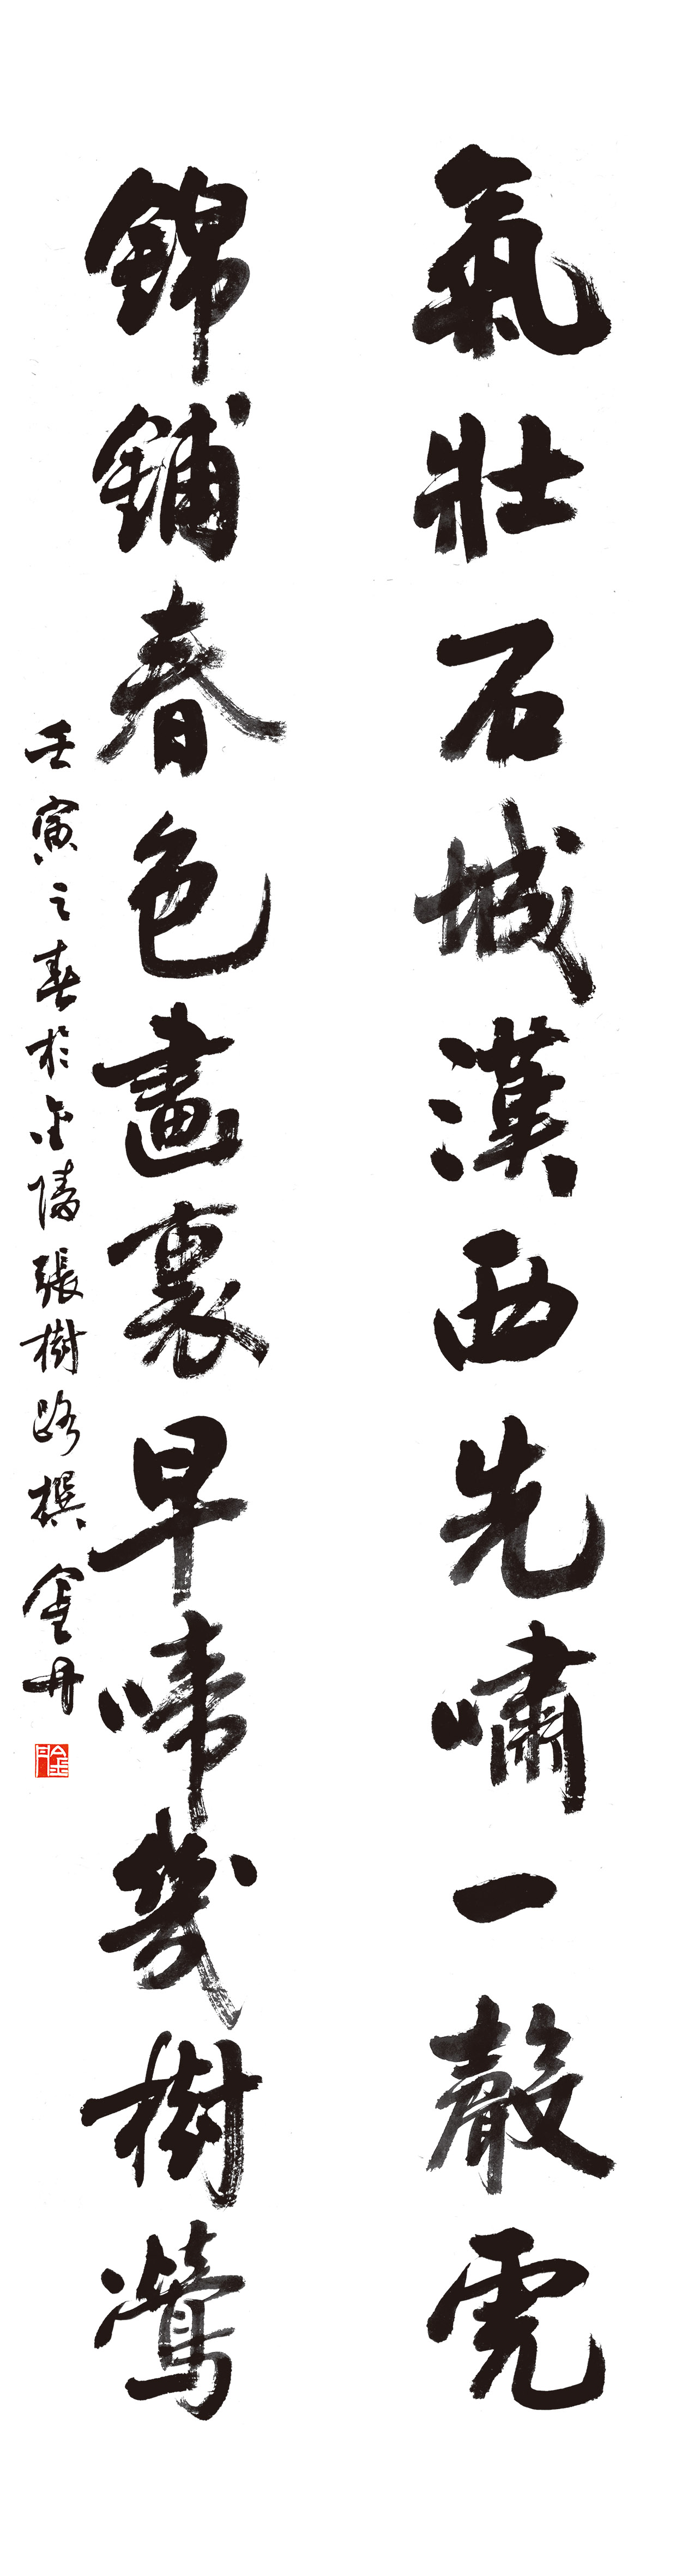 氣壯石城漢西先嘯一聲虎
錦鋪春色畫裏早啼幾樹鶯
壬寅之春於金陵張樹路撰金丹
金丹